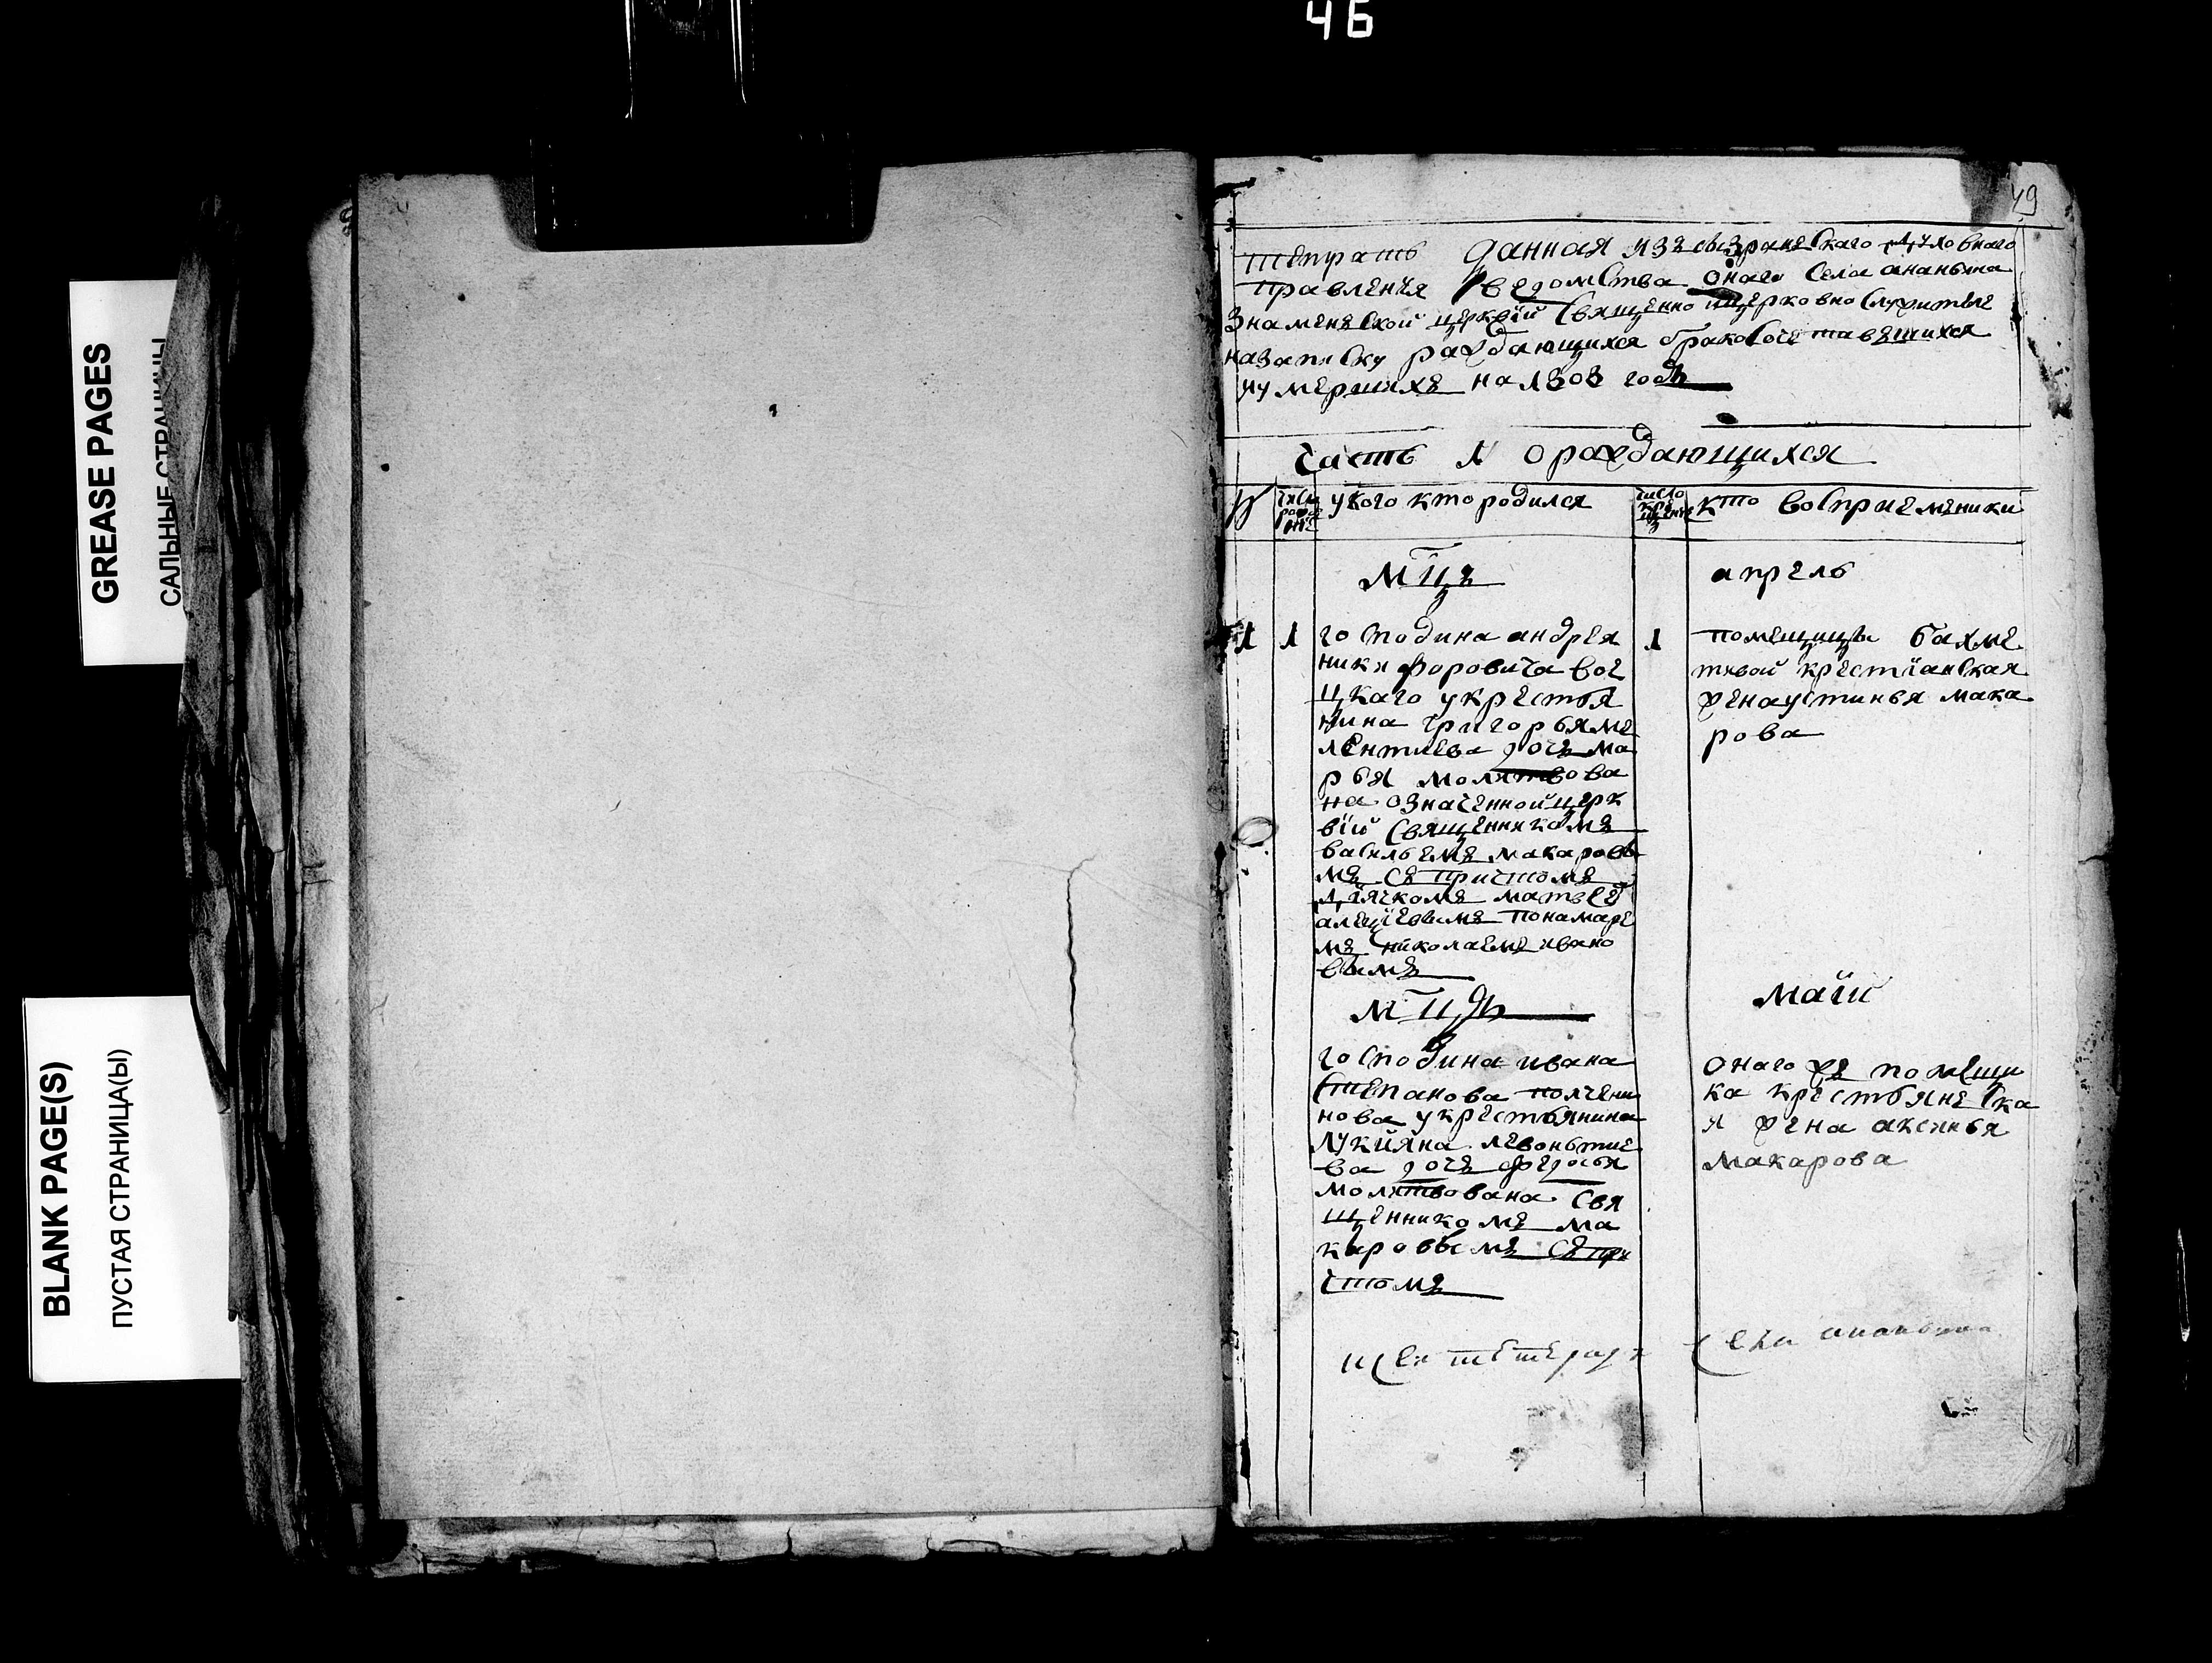 46
GREASE PAGES
САЛЬНЫЕ СТРАНИЦЫ
BLANK PAGE(S)
ПУСТАЯ СТРАНИЦА(Ы)
49
тепрать данная изъ сызранъскаго духовнаго
правления ведомства онаго села ананьина
знаменъской церквїй священно ицерковно служителе
назаписку раждающихся бракосочетавъшихся
иумершихъ на 1803 годъ
часть 1 ораждающихся
число рождение укого кто родился число крещения кто восприемъники
мцъ апрель
1 1 господина андрея
никифоровича вое
цкаго укрестья
нина григорья ме
лентиева дочь ма
рья молитвова
на означенной церк
вїй священникомъ
васильемъ макаровы
мъ съ причтомъ
дьячкомъ матвей
алецїевымъ понамаре
мъ николаемъ ивано
вымъ
1 помещицы бахме
тивой крестїанская
жена устинья мака
рова
мцъ май
господина ивана
степанова полчени
нова укрестьянина
лукийяна левоньтие
ва дочъ федосья
молитвована свя
щенникомъ ма
каровымъ съ при
чтомъ
онаго жъ помещи
ка крестьянъска
я жена аксинья
макарова
села ананьина